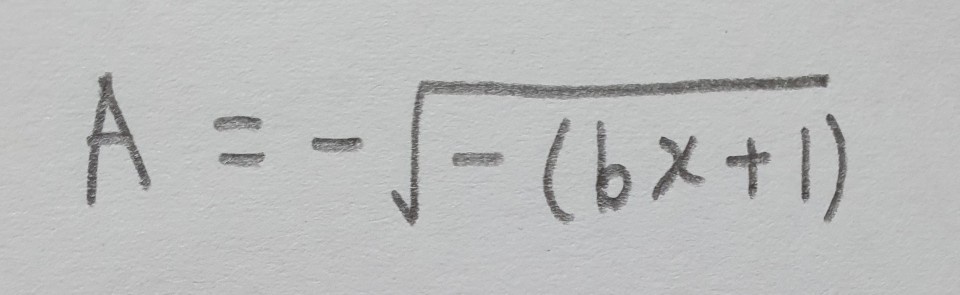 A = -√-(bx+1)